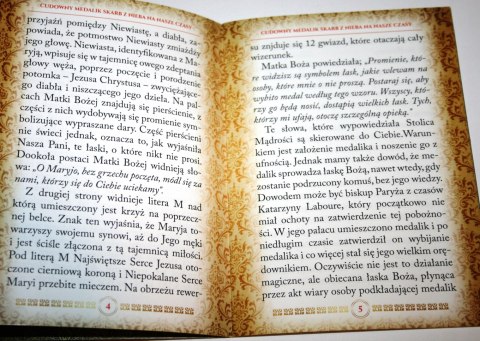 CUDOWNY MEDALIK SKARB Z NIEBA NA NASZE CZASY
przyjaźń pomiędzy Niewiastę, a diabła, zapo-
wiada, że potmostwo Niewiasty zmiażdży
jego głowę. Niewiasta, identyfikowana z Ma-
ryją, wpisuje się w tajemnicę owego zdeptania
głowy węża, poprzez poczęcie i porodzenie
potomka – Jezusa Chrystusa – zwyciężające-
go diabła i niszczącego jego dzieła. Na pal-
cach Matki Bożej znajdują się pierścienie, z
części z nich wydobywają się promienie sym-
bolizujące wypraszane dary. Część pierścieni
nie świeci jednak, oznacza to, jak wyjaśniła
Nasza Pani, te łaski, o które nikt nie prosi.
Dookoła postaci Matki Bożej widnieją sło-
wa: „O Maryjo, bez grzechu poczęta, módl się za
nami, którzy się do Ciebie uciekamy".
Z drugiej strony widnieje litera M nad
którą umieszczony jest krzyż na poprzecz-
nej belce. Znak ten wyjaśnia, że Maryja to-
warzyszy swojemu synowi, aż do Jego męki
i jest ściśle złączona z tą tajemnicą miłości.
Pod literą M Najświętsze Serce Jezusa oto-
czone cierniową koroną i Niepokalane Serce
Maryi przebite mieczem. Na obrzeżu rewer-
4
CUDOWNY MEDALIK SKARB Z NIEBA NA NASZE CZASY
su znjduje się 12 gwiazd, które otaczają cały
wizerunek.
Matka Boża powiedziała; „Promienie, któ-
re widzisz są symbolem łask, jakie wlewam na
osoby, które mnie o nie proszą. Postaraj się, aby
wybito medal według tego wzoru. Wszyscy, któ-
rzy go będą nosić, dostąpią wielkich łask. Tych,
którzy mi ufają, otoczę szczególną opieką."
Te słowa, które wypowiedziała Stolica
Mądrości są skierowane do Ciebie.Warun-
kiem jest założenie medalika i noszenie go z
ufnością. Jednak mamy także dowód, że me-
dalik sprowadza łaskę Bożą, nawet wtedy, gdy
zostanie podrzucony komuś, bez jego wiedzy.
Dowodem może być biskup Paryża z czasów
Katarzyny Laboure, który początkowo nie
miał ochoty na zatwierdzenie tej pobożno-
ści. W jego pałacu umieszczono medalik i po
niedługim czasie zatwierdził on wybijanie
medalika i co więcej stał się jego wielkim orę-
downikiem. Oczywiście nie jest to działanie
magiczne, ale obiecana łaska Boża, płynąca
przez akt wiary osoby podkładającej medalik
5